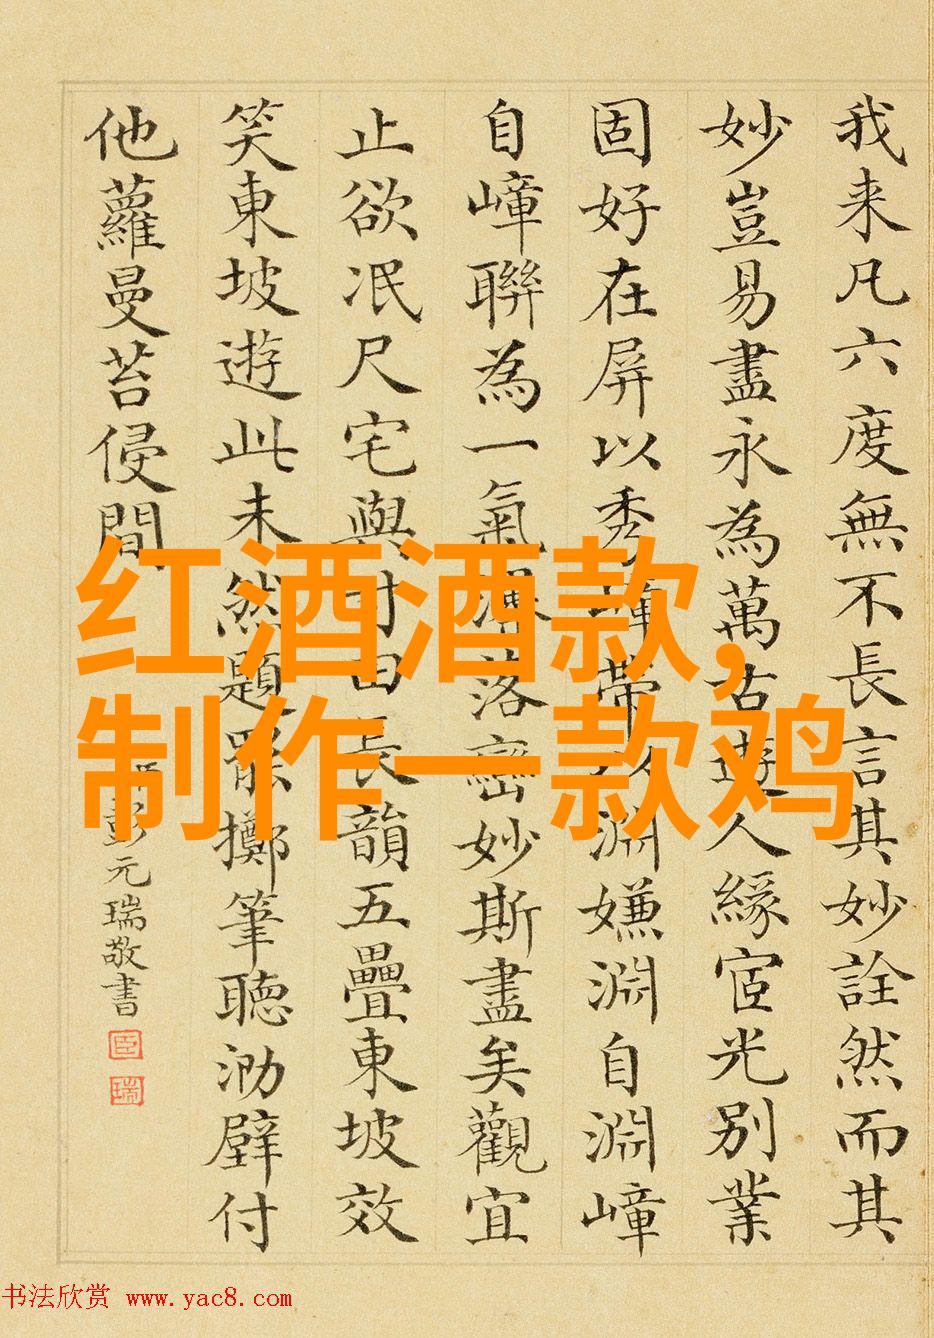 我来凡六度無不長言其妙詮然而其
妙豈易盡永為萬古遊人緣宦光別業
固好在屏以秀嶂帶以淵嫌淵自淵嶂
自嶂聯為一氣渾落巒妙斯盡矣觀宜
止欲泯尺宅與寸田長韻五疊東坡效
笑東坡遊此未然題罷擲筆聽泐壁付
他蘿蔓苔侵間
彭元瑞敬書
臣
瑞
红酒酒款,
制作一款鸡
书法欣赏 www.yac8.com